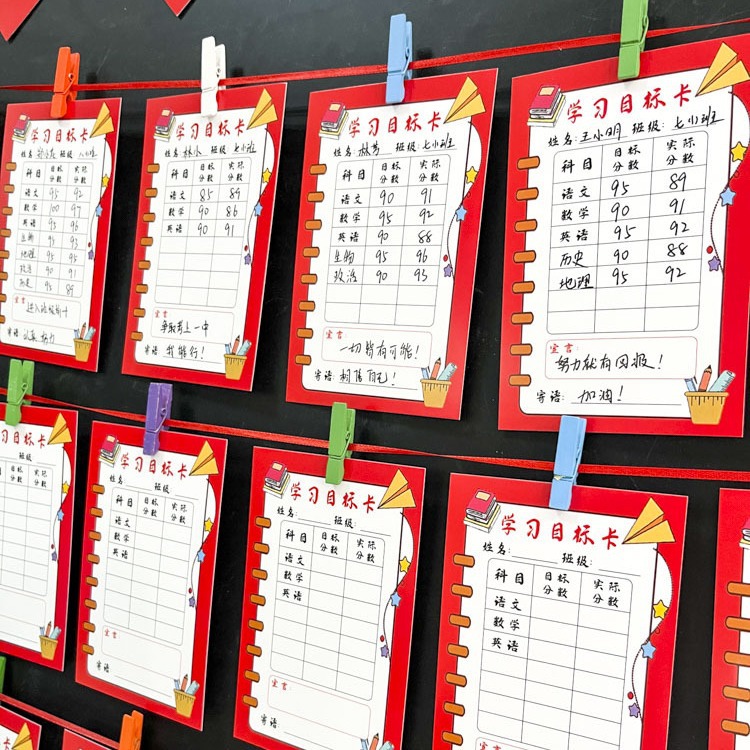 学习目标卡
班级: 八(1)班
科目 目标分数 实际分数
语文 95 92
数学 100 97
英语 95 96
生物 95 93
地理 95 95
政治 90 91
历史 95 89
宣言:
寄语:
学习目标卡
姓名: 林小 班级: 七(2)班
科目 目标分数 实际分数
语文 85 89
数学 90 86
英语 90 91
宣言:
争取考上一中
寄语: 我能行!
学习目标卡
姓名: 林芳 班级: 七(2)班
科目 目标分数 实际分数
语文 90 91
数学 95 92
英语 90 88
生物 95 96
政治 90 93
宣言:
一切皆有可能!
寄语: 相信自己!
学习目标卡
姓名: 王小明 班级: 七(2)班
科目 目标分数 实际分数
语文 95 89
数学 90 91
英语 95 92
历史 90 88
地理 95 92
宣言:
努力就有回报!
寄语: 加油!
学习目标卡
班级:
目标分数 实际分数
学习目标卡
姓名: 班级:
科目 目标分数 实际分数
语文
数学
英语
宣言:
寄语:
学习目标卡
姓名: 班级:
科目 目标分数 实际分数
语文
数学
英语
宣言:
寄语:
学习目标卡
姓名: 班级:
科目 目标分数 实际分数
语文
数学
英语
宣言: